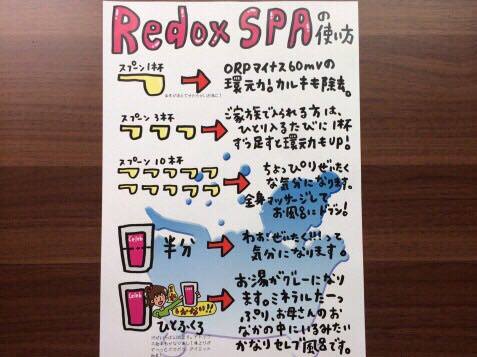 Redox SPAの使い方
スプーン1杯
ORPマイナス60mvの
還元力!カルキも除去。
スプーン3杯
ご家族で入られる方は、
ひとり入るたびに1杯
ずつ足すと還元力もUP!
スプーン10杯
ちょっぴりぜいたく
な気分になります。
全身マッサージして
お風呂にドブン!
Celeb
半分
わぉ!ぜいたく!!!って
気分になります。
Celeb
ひとふくろ
お湯がグレーになり
ます。ミネラルたーっ
ぷり、お母さんのお
なかの中にいるみたい
かなりセレブ風呂です。